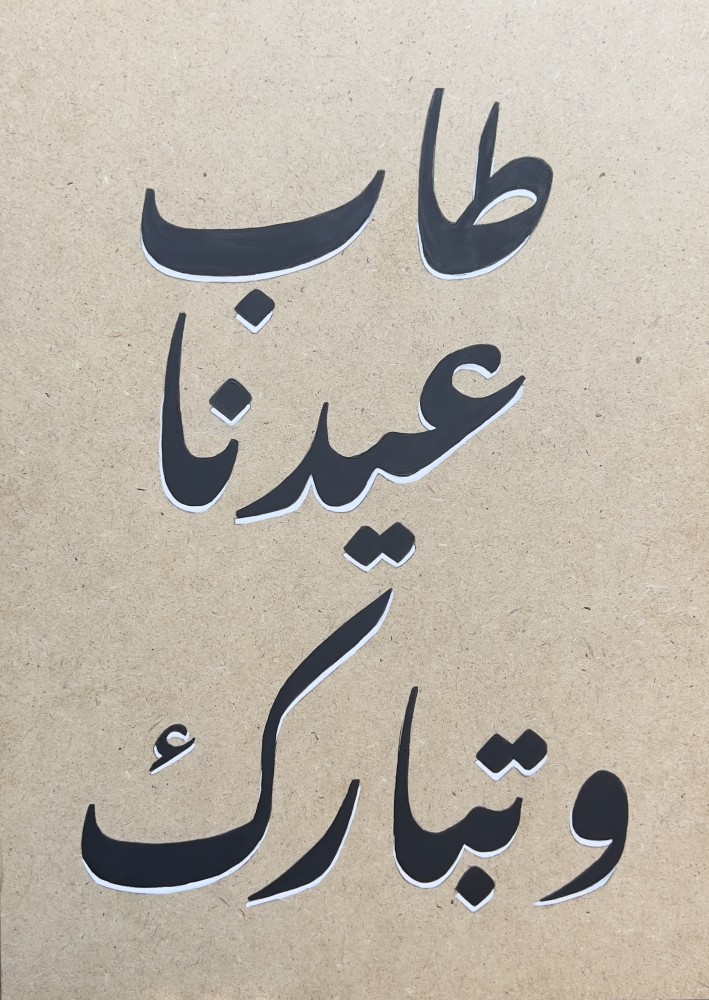 طاب
عيدنا
وتبارك